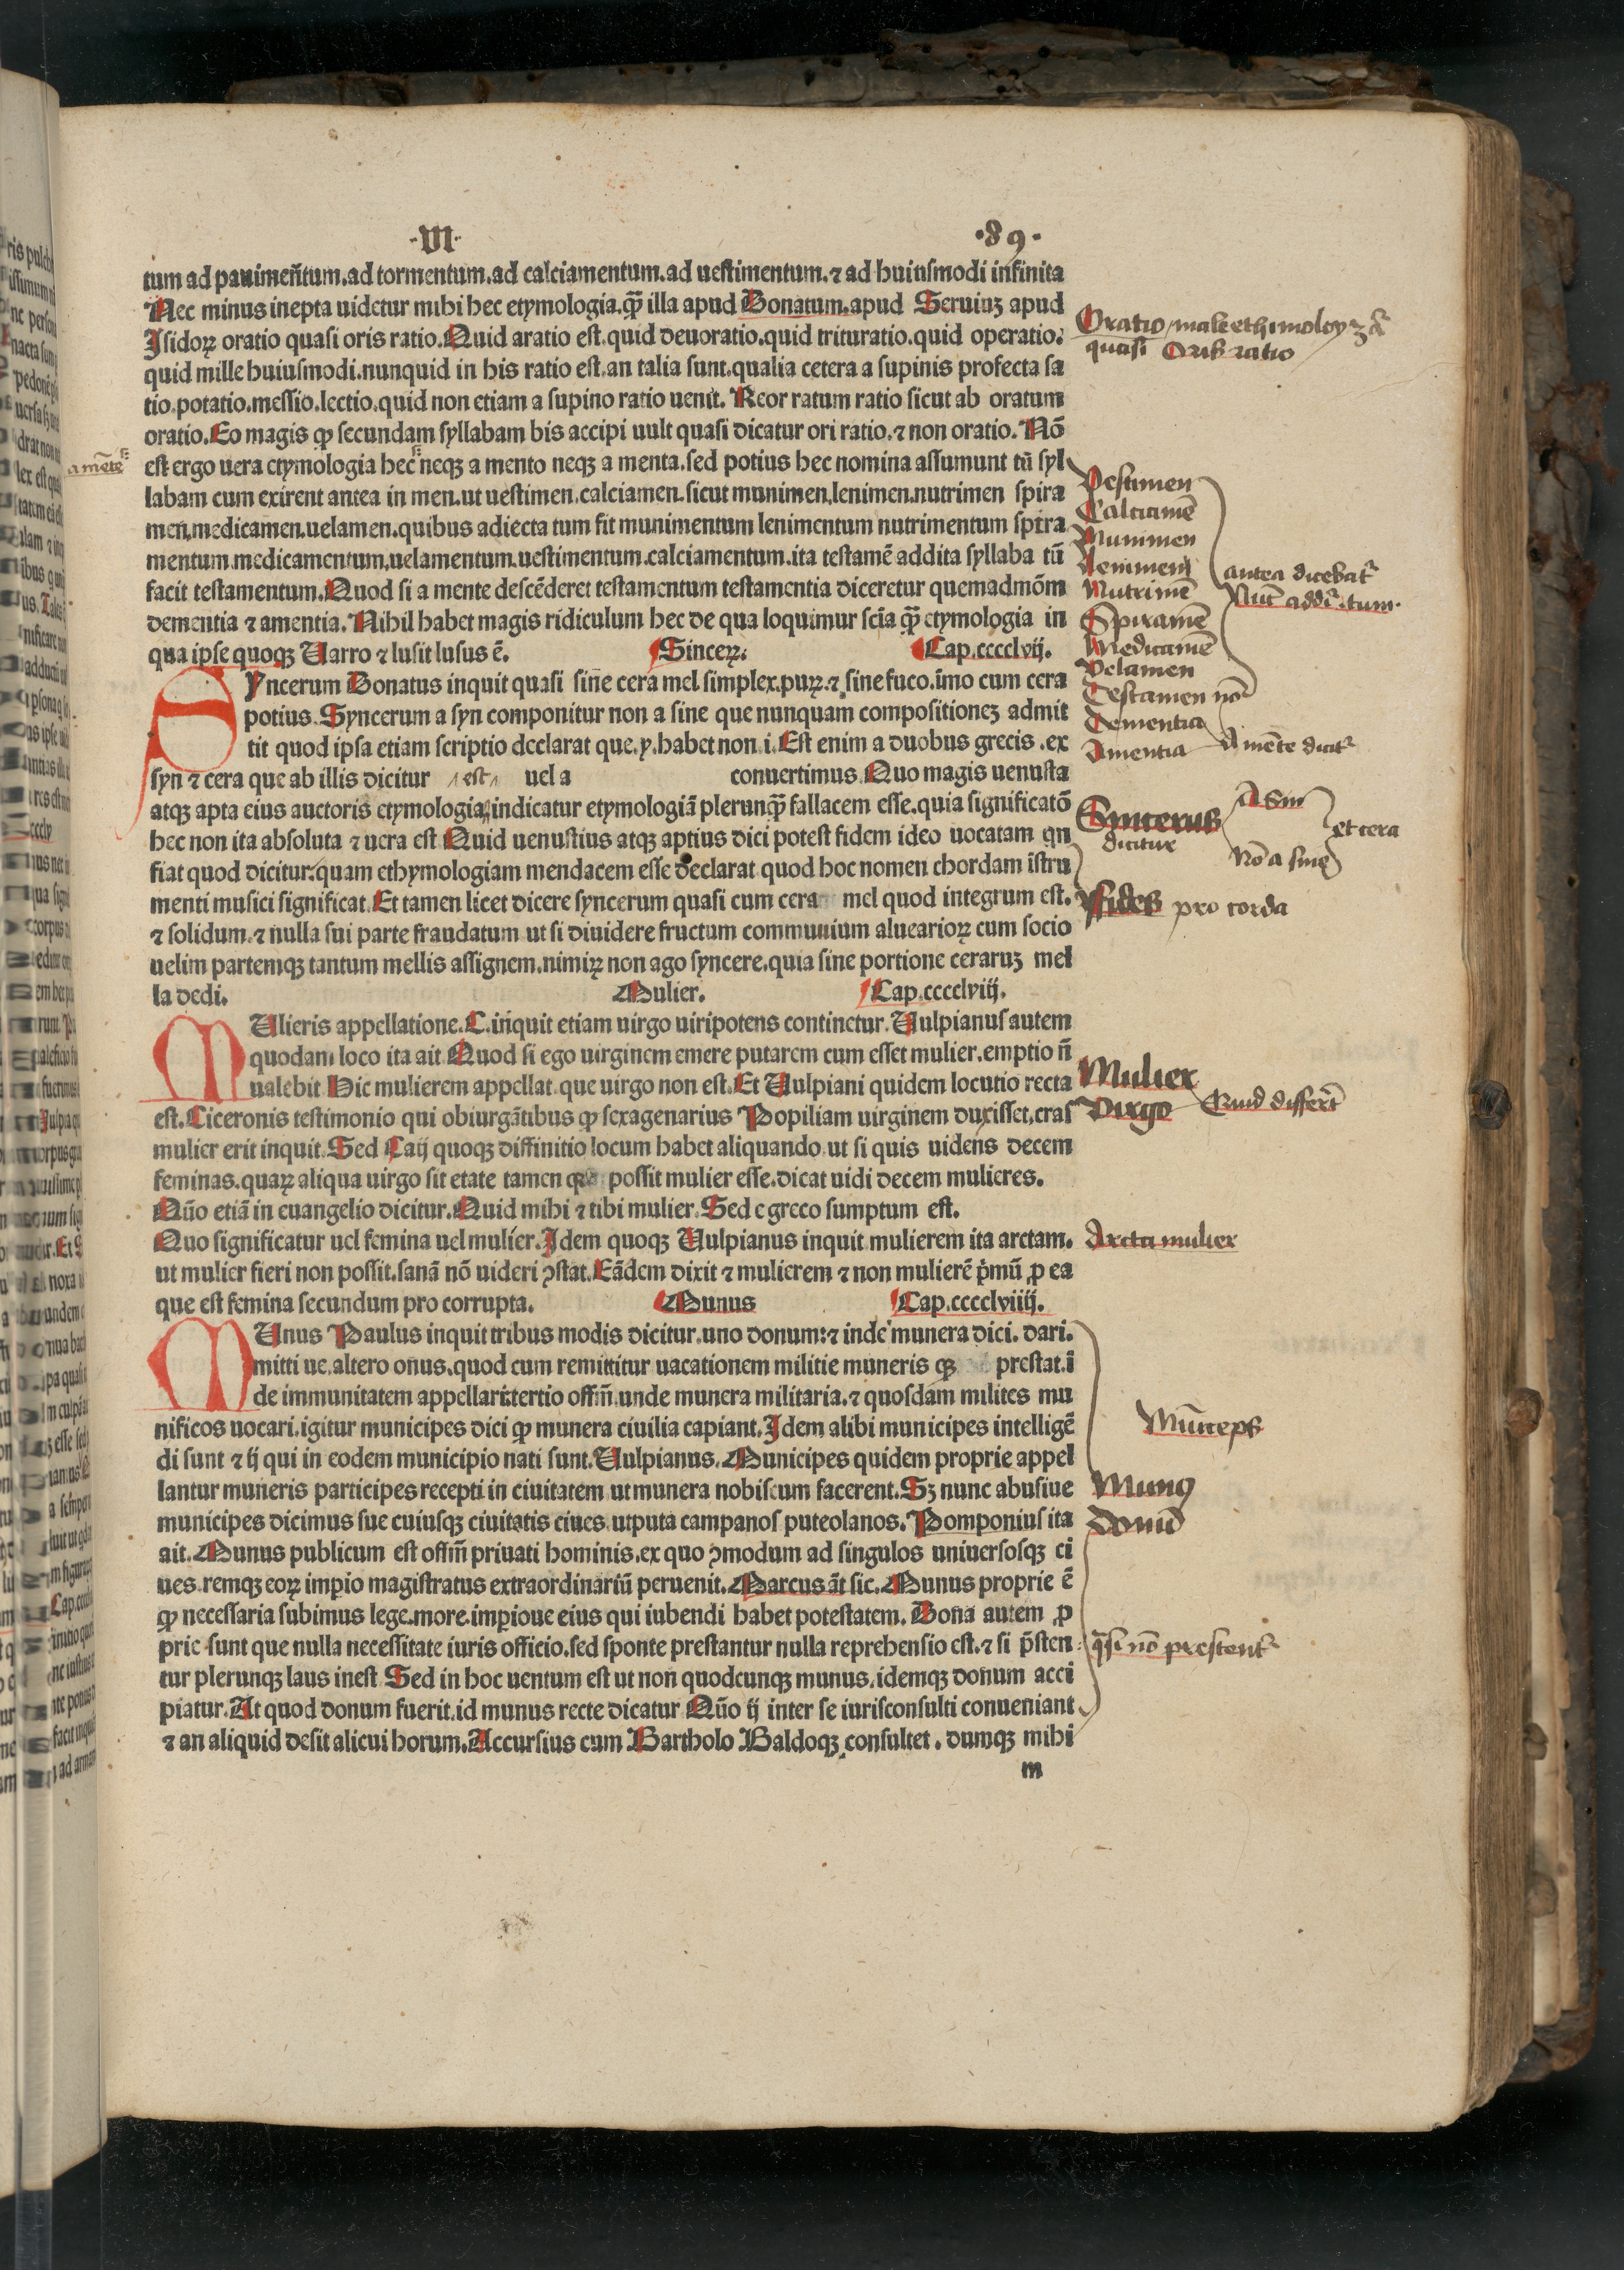 ·VI· ·89·
tum ad pauimentum.ad tormentum.ad calciamentum.ad uestimentum.⁊ ad huiusmodi infinita
Nec minus inepta uidetur mihi hec etymologia.qꝫ̄ illa apud Donatum.apud Seruiuꝫ apud
Isidoꝝ oratio quasi oris ratio.Quid aratio est.quid deuoratio.quid trituratio.quid operatio:
quid mille huiusmodi.nunquid in his ratio est.an talia sunt.qualia cetera a supinis profecta sa
tio.potatio.messio.lectio.quid non etiam a supino ratio uenit. Reor ratum ratio sicut ab oratum
oratio.Eo magis ꝙ secundam syllabam bis accipi uult quasi dicatur ori ratio.⁊ non oratio. Nō
est ergo uera etymologia hec neqꝫ a mento neqꝫ a menta.sed potius hec nomina assumunt tū syl
labam cum exirent antea in men.ut uestimen.calciamen.sicut munimen,lenimen.nutrimen spira
men,medicamen.uelamen.quibus adiecta tum fit munimentum lenimentum nutrimentum spira
mentum.medicamentum,uelamentum.uestimentum.calciamentum.ita testamē addita syllaba tū
facit testamentum.Quod si a mente descēderet testamentum testamentia diceretur quemadmōm
dementia ⁊ amentia. Nihil habet magis ridiculum hec de qua loquimur scīa qꝫ̄ etymologia in
qua ipse quoqꝫ Uarro ⁊ lusit lusus ē. Sinceꝝ. Cap.cccclvij.
Syncerum Donatus inquit quasi sine cera mel simplex.puꝝ.⁊ sine fuco.imo cum cera
potius.Syncerum a syn componitur non a sine que nunquam compositioneꝫ admit
tit quod ipsa etiam scriptio declarat que.y.habet non i.Est enim a duobus grecis .ex
syn ⁊ cera que ab illis dicitur est uel a conuertimus.Quo magis uenusta
atqꝫ apta eius auctoris etymologia indicatur etymologiā plerunqꝫ̄ fallacem esse.quia significatō
hec non ita absoluta ⁊ uera est Quid uenustius atqꝫ aptius dici potest fidem ideo uocatam qn
fiat quod dicitur:quam ethymologiam mendacem esse declarat quod hoc nomen chordam istru
menti musici significat.Et tamen licet dicere syncerum quasi cum cera mel quod integrum est.
⁊ solidum.⁊ nulla sui parte fraudatum ut si diuidere fructum communium aluearioꝝ cum socio
uelim partemqꝫ tantum mellis assignem.nimiꝝ non ago syncere.quia sine portione ceraruꝫ mel
la dedi. Mulier. Cap.cccclviij.
MUlieris appellatione.C.inquit etiam uirgo uiripotens continetur.Uulpianus autem
quodam loco ita ait Quod si ego uirginem emere putarem cum esset mulier.emptio n̄
ualebit Hic mulierem appellat.que uirgo non est.Et Uulpiani quidem locutio recta
est.Ciceronis testimonio qui obiurgātibus ꝙ sexagenarius Popiliam uirginem duxisset,cras
mulier erit inquit.Sed Caij quoqꝫ diffinitio locum habet aliquando ut si quis uidens decem
feminas.quaꝝ aliqua uirgo sit etate tamen possit mulier esse.dicat uidi decem mulieres.
Qūo etiā in euangelio dicitur.Quid mihi ⁊ tibi mulier.Sed e greco sumptum est.
Quo significatur uel femina uel mulier.Idem quoqꝫ Uulpianus inquit mulierem ita arctam.
ut mulier fieri non possit.sanā nō uideri ꝯstat.Eādem dixit ⁊ mulierem ⁊ non mulierē p̄mū ꝓ ea
que est femina secundum pro corrupta. Munus Cap.cccclviiij.
MUnus Paulus inquit tribus modis dicitur.uno donum:⁊ inde munera dici. dari.
mitti ue.altero onus.quod cum remittitur uacationem militie muneris qꝫ prestat.ī
de immunitatem appellari:tertio offm̄.unde munera militaria.⁊ quosdam milites mu
nificos uocari.igitur municipes dici ꝙ munera ciuilia capiant.Idem alibi municipes intelligē
di sunt ⁊ ij qui in eodem municipio nati sunt.Uulpianus.Municipes quidem proprie appel
lantur muneris participes recepti in ciuitatem ut munera nobiscum facerent.Sꝫ nunc abusiue
municipes dicimus sue cuiusqꝫ ciuitatis ciues utputa campanos puteolanos.Pomponius ita
ait.Munus publicum est offm̄ priuati hominis.ex quo ꝯmodum ad singulos uniuersosqꝫ ci
ues remqꝫ eoꝝ imp̄io magistratus extraordinariū peruenit.Marcus āt sic.Munus proprie ē
ꝙ necessaria subimus lege.more.imp̄ioue eius qui iubendi habet potestatem. Dona autem ꝓ
prie sunt que nulla necessitate iuris officio.sed sponte prestantur nulla reprehensio est.⁊ si p̄sten
tur plerunqꝫ laus inest Sed in hoc uentum est ut non quodcunqꝫ munus.idemqꝫ donum acci
piatur.At quod donum fuerit.id munus recte dicatur Qūo ij inter se iurisconsulti conueniant
⁊ an aliquid desit alicui horum.Accursius cum Bartholo Baldoqꝫ consultet. dumqꝫ mihi
m
a mēte
Oratio male ethimoloy
quasi Oris ratio
Vestimen
Calciamē
Munimen
Lenimen
Nutrimē
Spiramē
Medicamē
Velamen
Testamen nō
Dementia
Amentia
antea dicebat᷑
Nūc addit᷑ .tum.
A mēte dicit᷑
Sincerus
dicitur
A Sin
Nō a sine
et cera
Fides pro corda
Mulier
Virgo
Quid differēt
Arcta mulier
Mūiceps
Munꝰ
Donū
non prestent᷑